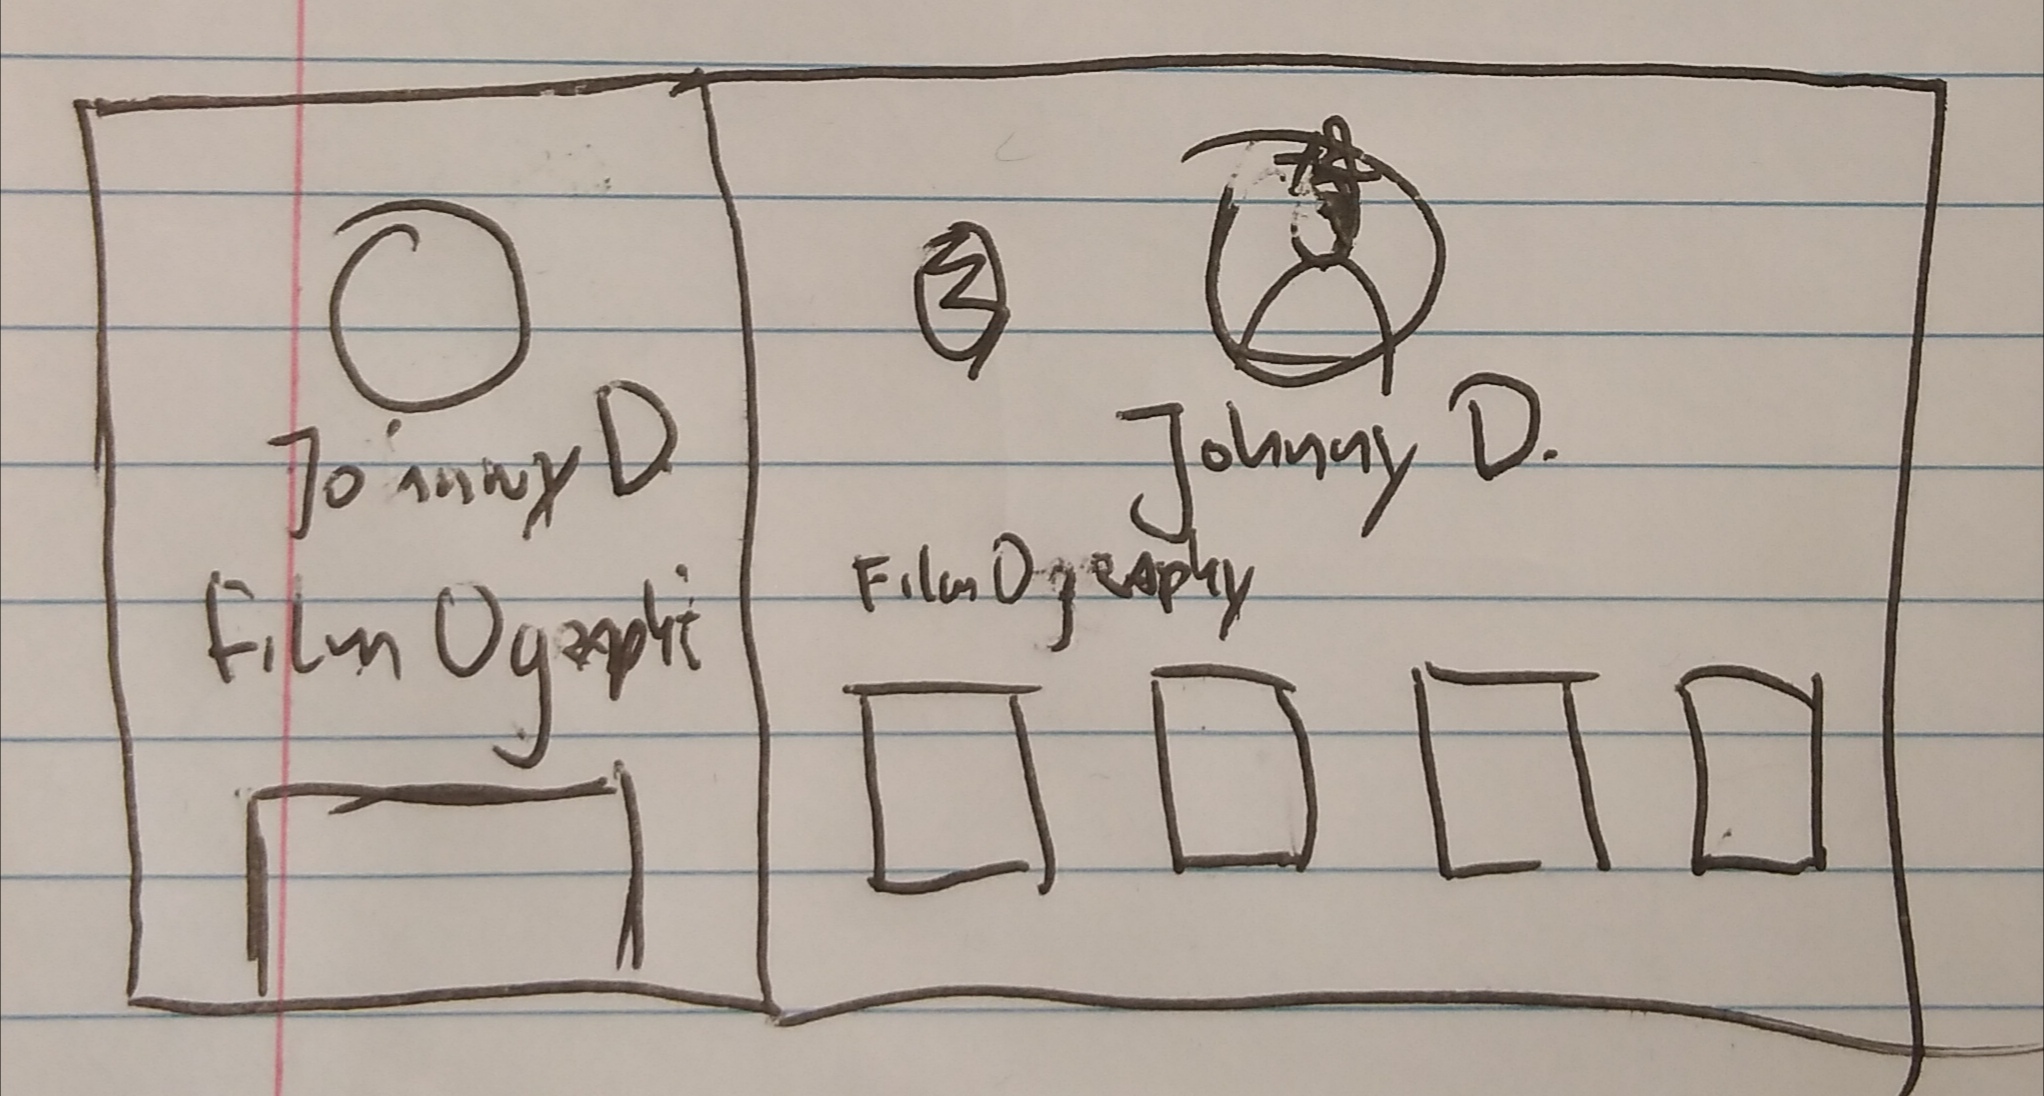 Johnny D
Filmography
Johnny D.
Filmography